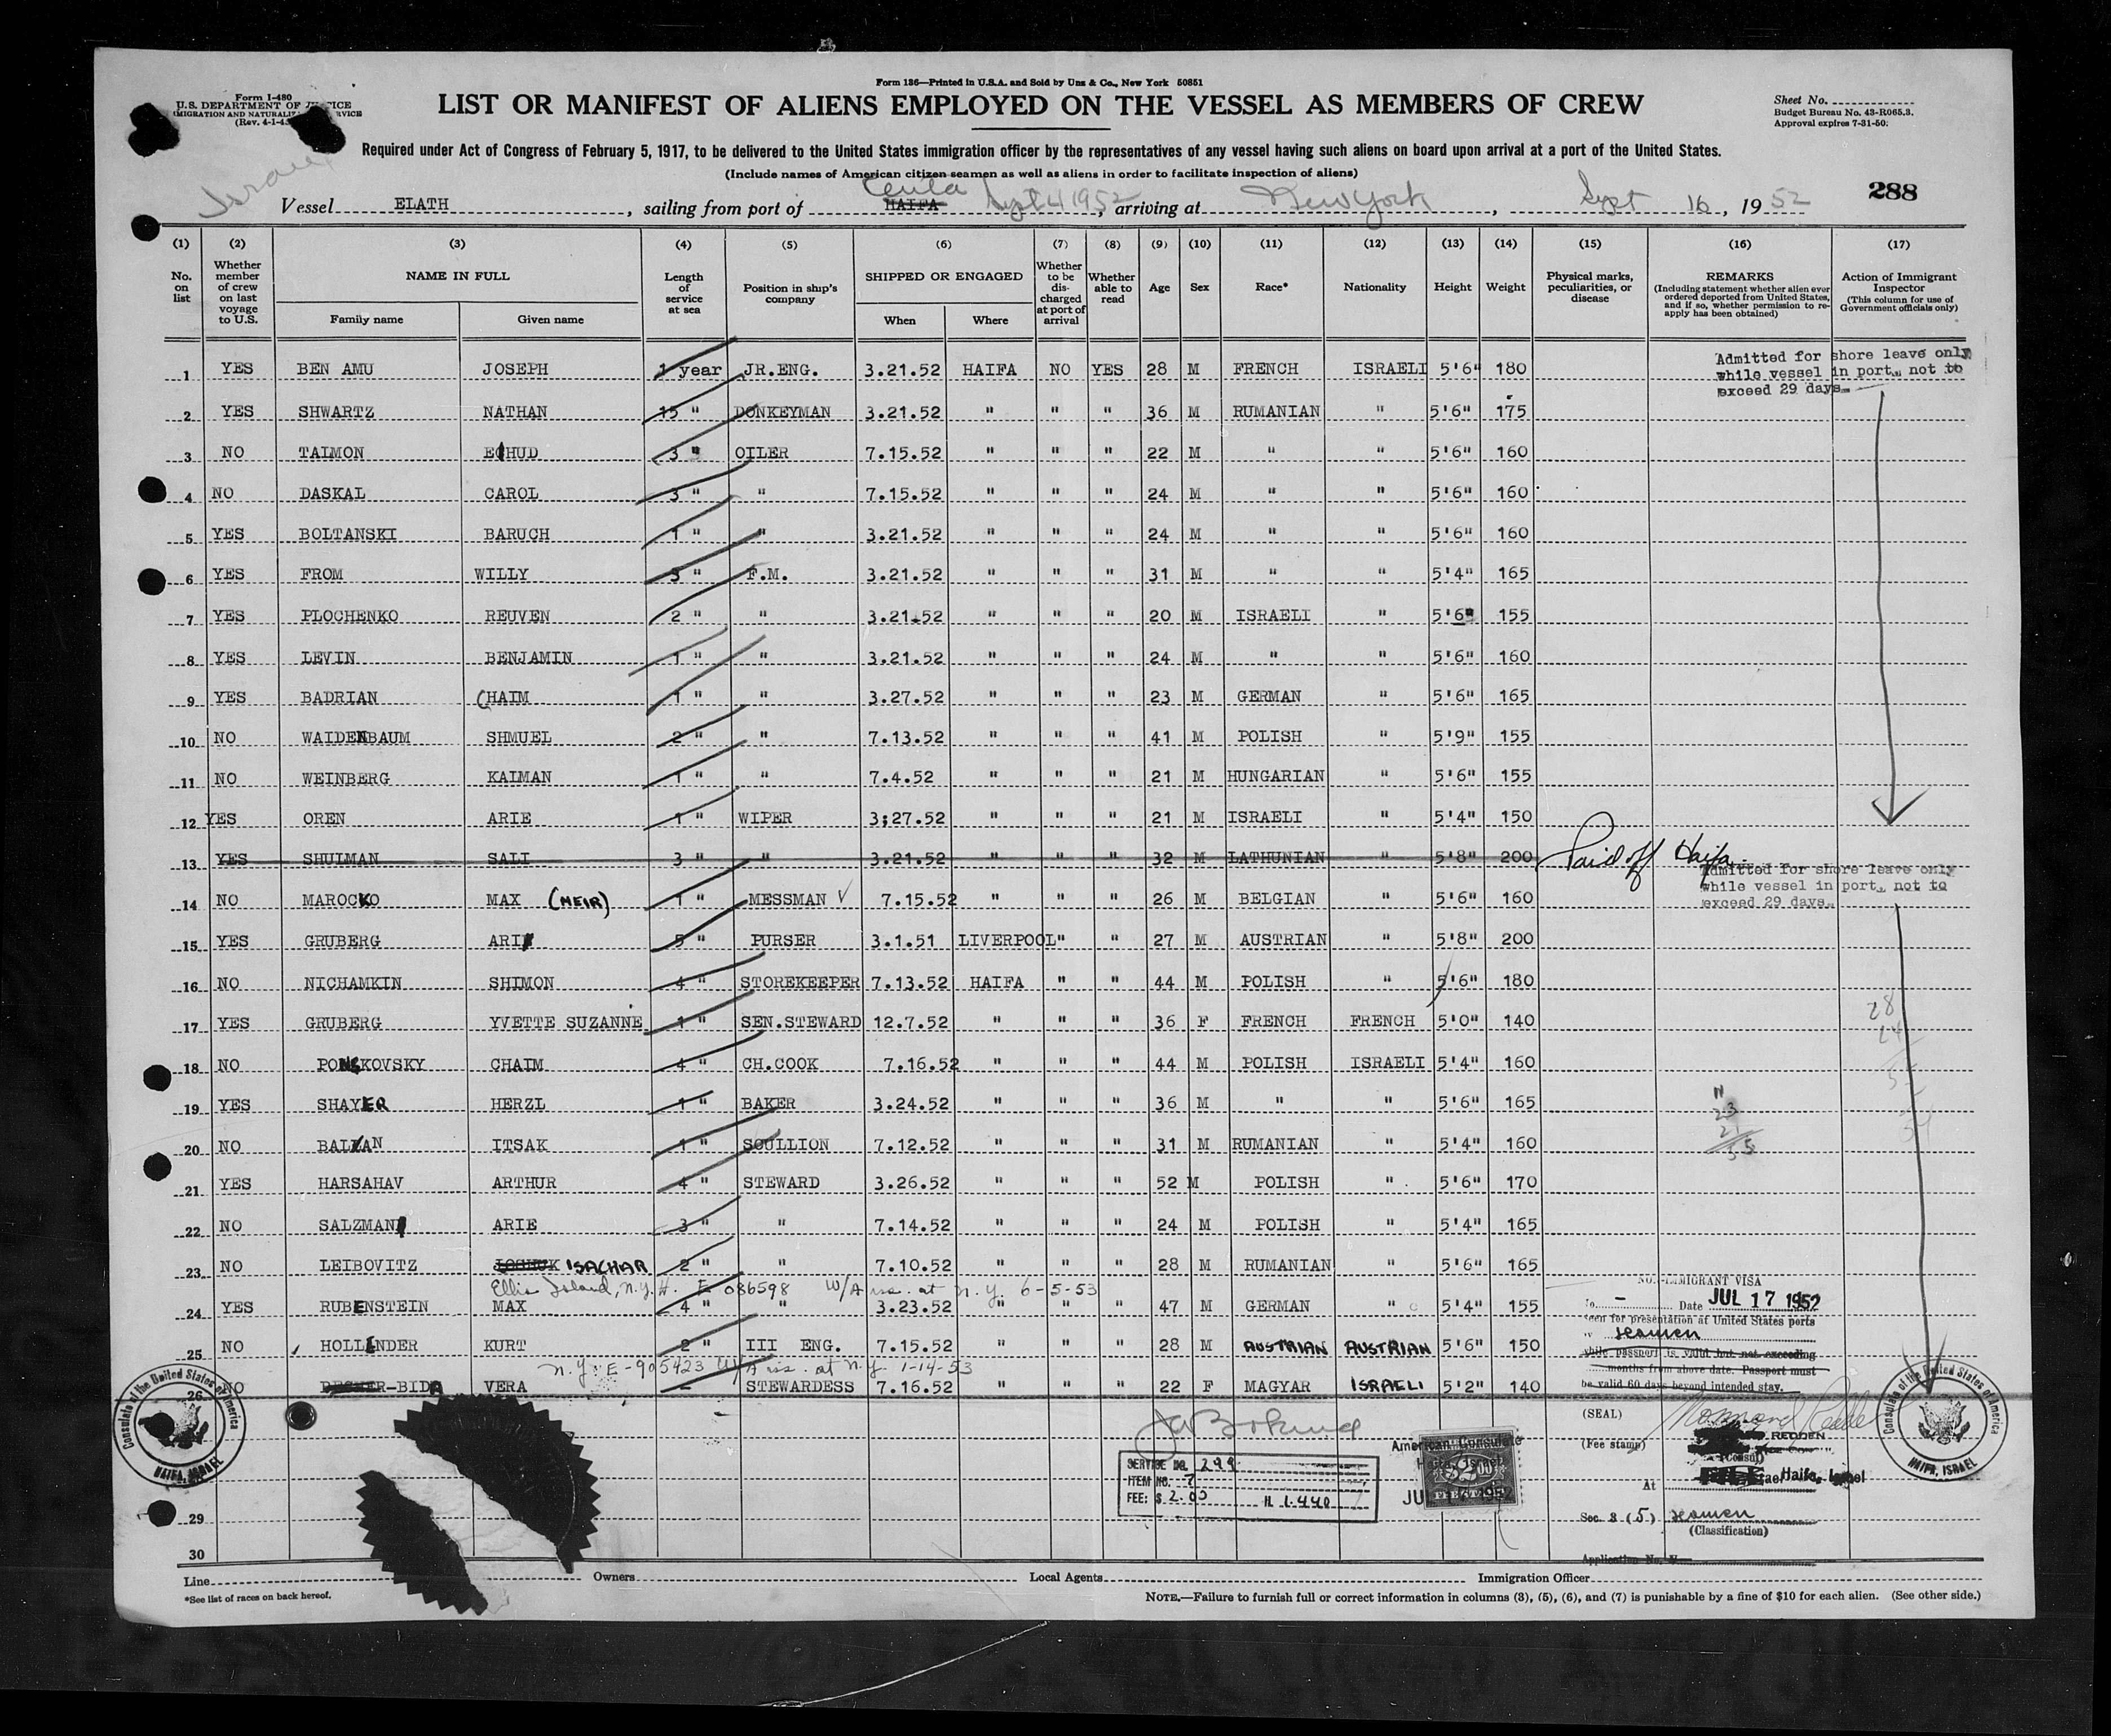 Form 136—Printed in U.S.A. and Sold by Unz & Co., New York 50851
Form I-480
U.S. DEPARTMENT OF JUSTICE
IMMIGRATION AND NATURALIZATION SERVICE
(Rev. 4-1-4
LIST OR MANIFEST OF ALIENS EMPLOYED ON THE VESSEL AS MEMBERS OF CREW
Sheet No.
Budget Bureau No. 43-R065.3.
Approval expires 7-31-50.
Required under Act of Congress of February 5, 1917, to be delivered to the United States immigration officer by the representatives of any vessel having such aliens on board upon arrival at a port of the United States.
(Include names of American citizen seamen as well as aliens in order to facilitate inspection of aliens)
Israeli
Vessel ELATH, sailing from port of HAIFA Ceuta Sept 4 1952, arriving at New York, Sept 16, 1952
288
(1) (2) (3) (4) (5) (6) (7) (8) (9) (10) (11) (12) (13) (14) (15) (16) (17)
No. on list
Whether member of crew on last voyage to U.S.
NAME IN FULL
Family name
Given name
Length of service at sea
Position in ship's company
SHIPPED OR ENGAGED
When
Where
Whether to be discharged at port of arrival
Whether able to read
Age
Sex
Race*
Nationality
Height
Weight
Physical marks, peculiarities, or disease
REMARKS
(Including statement whether alien ever ordered deported from United States, and if so, whether permission to re-apply has been obtained)
Action of Immigrant Inspector
(This column for use of Government officials only)
1 YES BEN AMU JOSEPH 1 year JR.ENG. 3.21.52 HAIFA NO YES 28 M FRENCH ISRAELI 5'6" 180
Admitted for shore leave only
while vessel in port, not to
exceed 29 days.
2 YES SHWARTZ NATHAN 15 " DONKEYMAN 3.21.52 " " " 36 M RUMANIAN " 5'6" 175
3 NO TALMON EHUD 3 " OILER 7.15.52 " " " 22 M " " 5'6" 160
4 NO DASKAL CAROL 3 " " 7.15.52 " " " 24 M " " 5'6" 160
5 YES BOLTANSKI BARUCH 1 " " 3.21.52 " " " 24 M " " 5'6" 160
6 YES FROM WILLY 3 " F.M. 3.21.52 " " " 31 M " " 5'4" 165
7 YES PLOCHENKO REUVEN 2 " " 3.21.52 " " " 20 M ISRAELI " 5'6" 155
8 YES LEVIN BENJAMIN 1 " " 3.21.52 " " " 24 M " " 5'6" 160
9 YES BADRIAN CHAIM 1 " " 3.27.52 " " " 23 M GERMAN " 5'6" 165
10 NO WAIDENBAUM SHMUEL 2 " " 7.13.52 " " " 41 M POLISH " 5'9" 155
11 NO WEINBERG KAIMAN 1 " " 7.4.52 " " " 21 M HUNGARIAN " 5'6" 155
12 YES OREN ARIE 1 " WIPER 3;27.52 " " " 21 M ISRAELI " 5'4" 150
13 YES SHULMAN SALI 3 " " 3.21.52 " " " 32 M LATHUNIAN " 5'8" 200 Paid off Haifa.
Admitted for shore leave only
while vessel in port, not to
exceed 29 days.
14 NO MAROCKO MAX (MEIR) 1 " MESSMAN 7.15.52 " " " 26 M BELGIAN " 5'6" 160
15 YES GRUBERG ARI 5 " PURSER 3.1.51 LIVERPOOL " " 27 M AUSTRIAN " 5'8" 200
16 NO NICHAMKIN SHIMON 4 " STOREKEEPER 7.13.52 HAIFA " " 44 M POLISH " 5'6" 180
17 YES GRUBERG YVETTE SUZANNE 1 " SEN.STEWARD 12.7.52 " " " 36 F FRENCH FRENCH 5'0" 140
18 NO KOVSKY CHAIM 4 " CH.COOK 7.16.52 " " " 44 M POLISH ISRAELI 5'4" 160
19 YES SHAYER HERZL 1 " BAKER 3.24.52 " " " 36 M " " 5'6" 165
20 NO ITSAK 1 " SCULLION 7.12.52 " " " 31 M RUMANIAN " 5'4" 160
21 YES HARSAHAV ARTHUR 4 " STEWARD 3.26.52 " " " 52 M POLISH " 5'6" 170
22 NO SALZMAN ARIE 3 " " 7.14.52 " " " 24 M POLISH " 5'4" 165
23 NO LEIBOVITZ ISACHAR 2 " " 7.10.52 " " " 28 M RUMANIAN " 5'6" 165
Ellis Island, N.Y. E 086598 W/A iss. at N.Y. 6-5-53
24 YES RUBENSTEIN MAX 4 " " 3.23.52 " " " 47 M GERMAN " 5'4" 155
25 NO HOLLENDER KURT 2 " III ENG. 7.15.52 " " " 28 M AUSTRIAN AUSTRIAN 5'6" 150
N.Y. E-905423 W/A iss. at N.Y. 1-14-53
26 NO -BIDA VERA 2 STEWARDESS 7.16.52 " " " 22 F MAGYAR ISRAELI 5'2" 140
NON-IMMIGRANT VISA
No. - Date JUL 17 1952
Seen for presentation at United States ports
seamen
while passport is valid but not exceeding
months from above date. Passport must
be valid 60 days beyond intended stay.
(SEAL)
REDDEN
(Fee stamp)
(Consul)
At Haifa, Israel
Sec. 3 (5) seamen
(Classification)
Application No. V
Consulate of the United States of America
HAIFA, ISRAEL
Consulate of the United States of America
HAIFA, ISRAEL
SERVICE NO. 299
ITEM NO. 7
FEE: $ 2.00 1.440
American Consulate
Haifa, Israel
JUL 17 1952
$2.00
29
30
Line
Owners
Local Agents
Immigration Officer
*See list of races on back hereof.
NOTE.—Failure to furnish full or correct information in columns (3), (5), (6), and (7) is punishable by a fine of $10 for each alien. (See other side.)